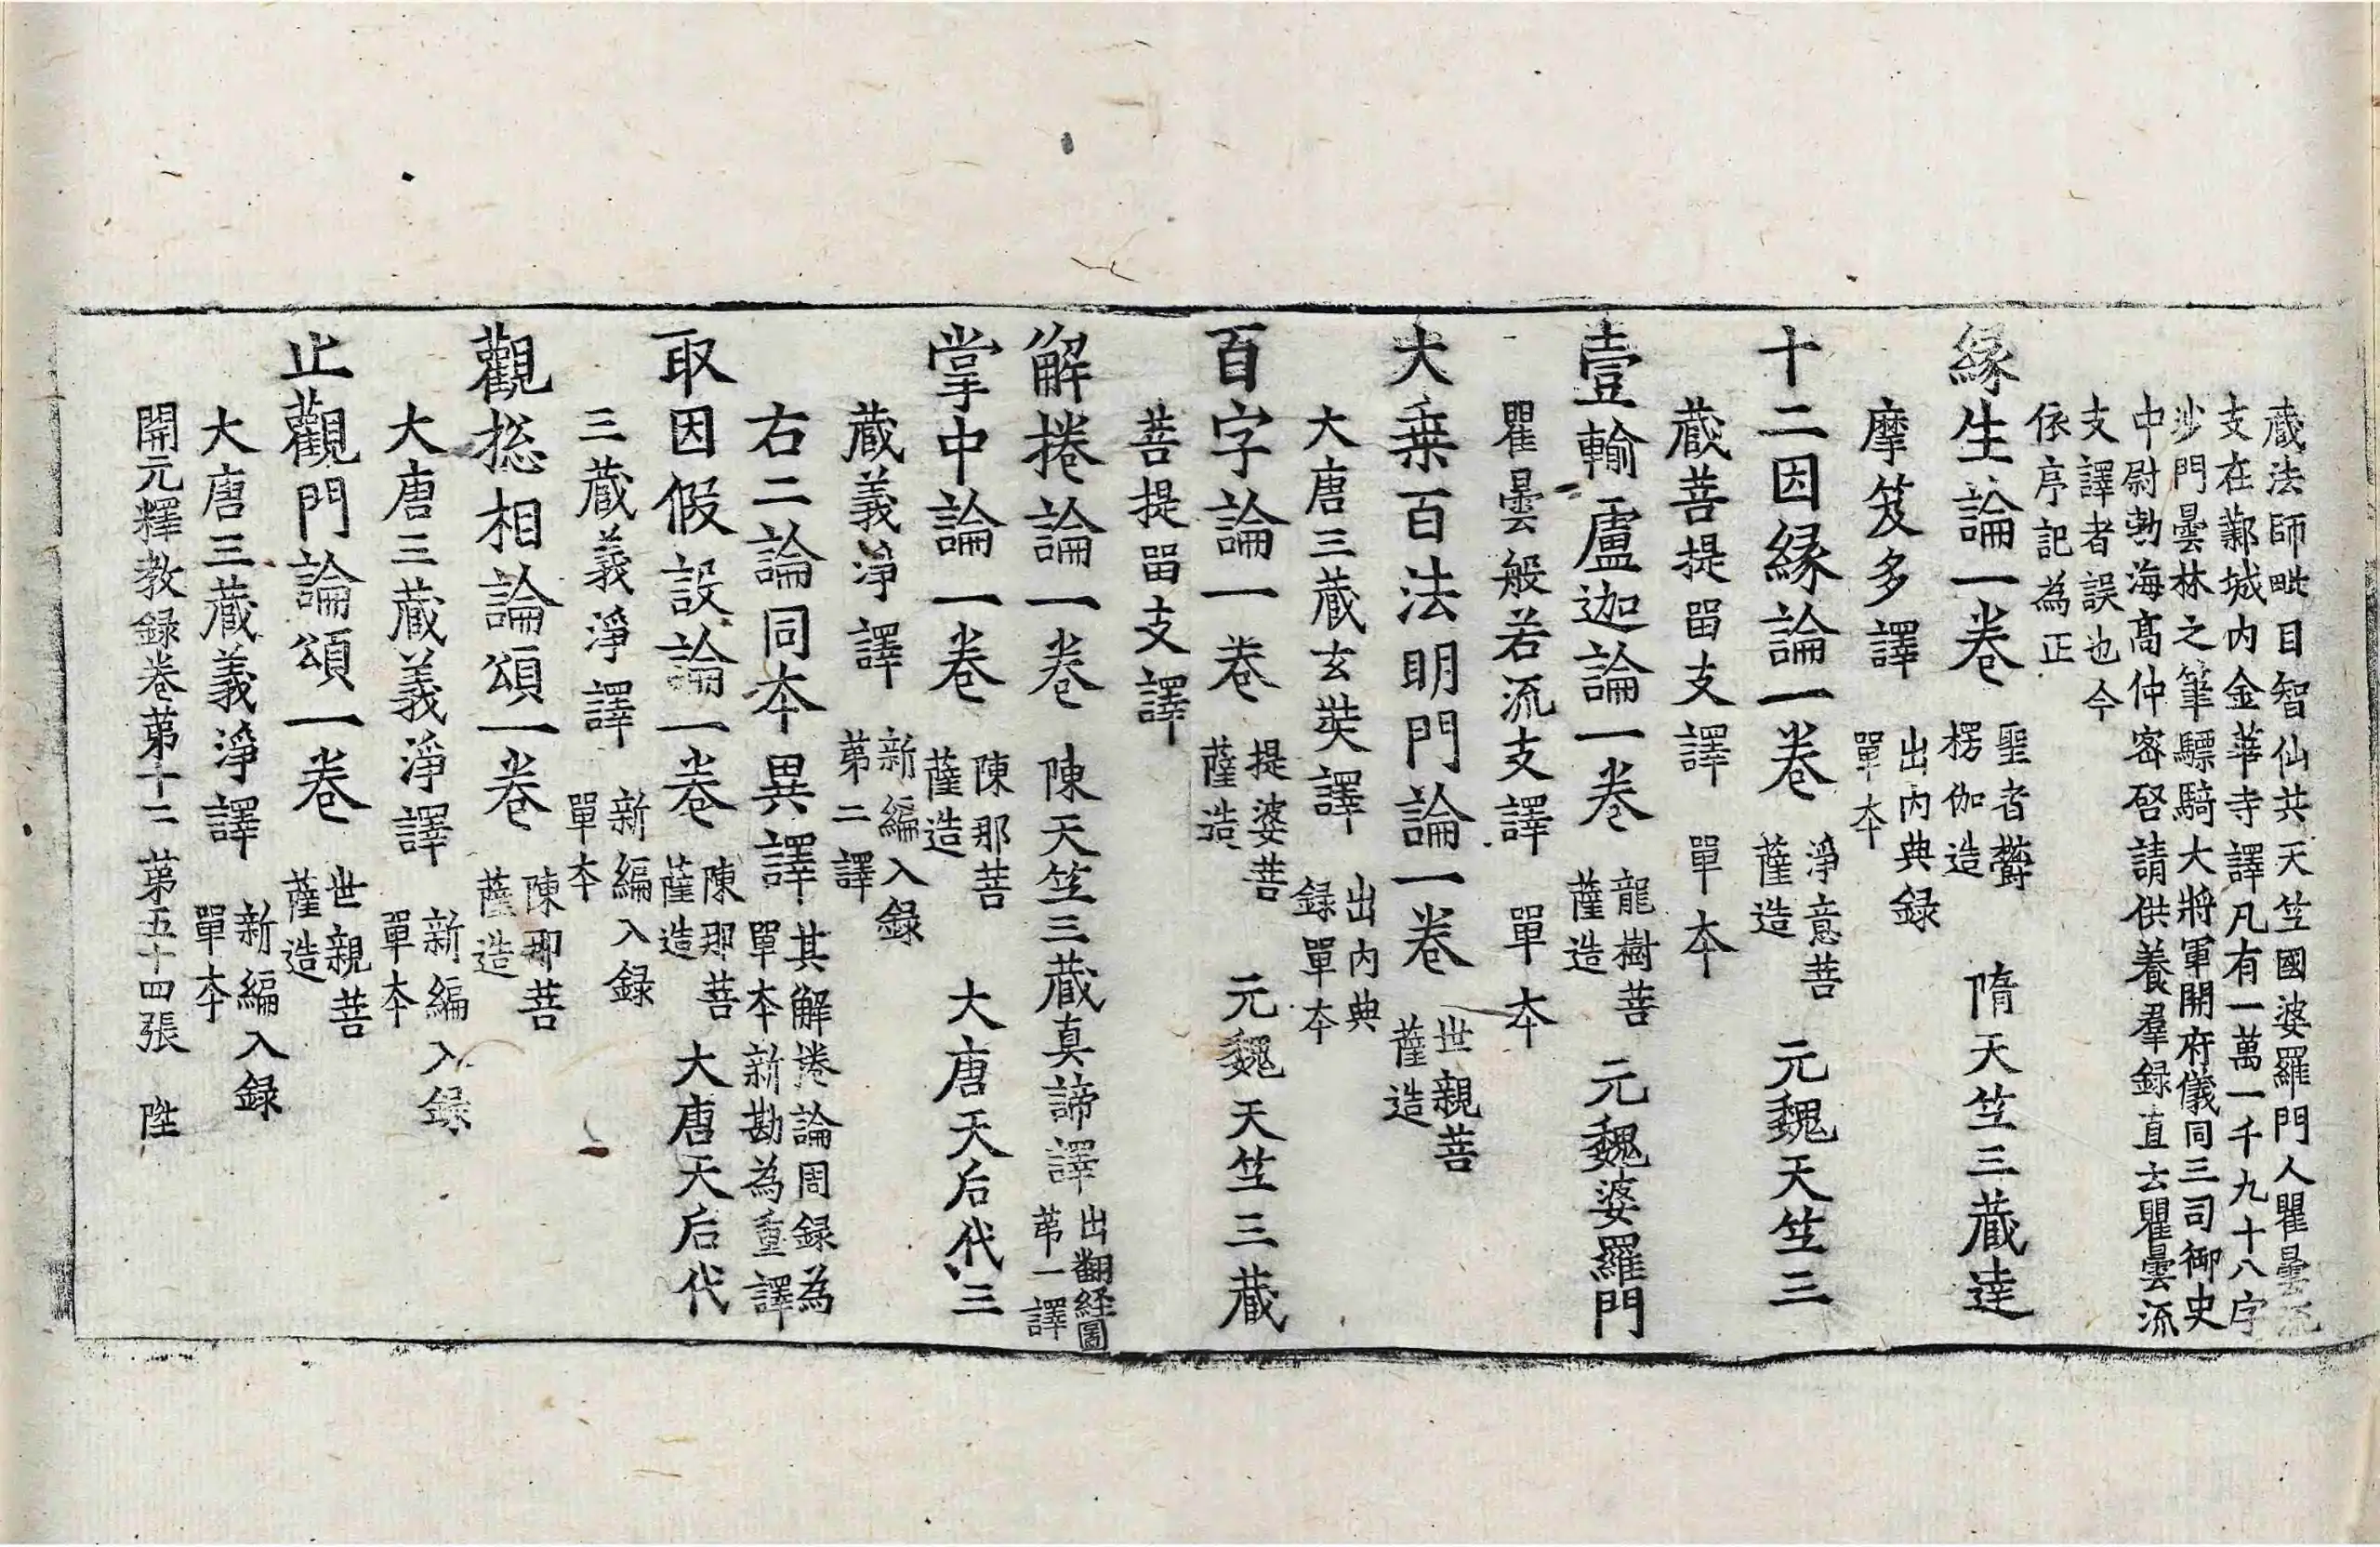 蔵法師毗目智仙共天竺國婆羅門人瞿曇流
支在鄴城内金華寺譯凡有一萬一千九十八字
沙門曇林之筆驃騎大將軍開府儀同三司御史
中尉勃海髙仲密啓請供養羣録直云瞿曇流
支譯者誤也今
依序記為正
縁生論一卷 聖者欝楞伽造 隋天竺三蔵達
摩笈多譯 出内典録單本
十二因縁論一卷 淨意菩薩造 元魏天竺三
蔵菩提畱支譯 單本
壹輸盧迦論一卷 龍樹菩薩造 元魏婆羅門
瞿曇般若流支譯 單本
大乗百法明門論一卷 世親菩薩造
大唐三蔵玄奘譯 出内典録單本
百字論一卷 提婆菩薩造 元魏天竺三蔵
菩提畱支譯
解捲論一卷 陳天竺三蔵真諦譯 出翻經圖苐一譯
掌中論一卷 陳那菩薩造 大唐天后代三
蔵義淨譯 新編入録第二譯
右二論同本異譯 其解捲論周録為單本新勘為重譯
取因假設論一卷 陳那菩薩造 大唐天后代
三蔵義淨譯 新編入録單本
觀摠相論頌一卷 陳那菩薩造
大唐三蔵義淨譯 新編入録單本
止觀門論頌一卷 世親菩薩造
大唐三蔵義淨譯 新編入録單本
開元釋教録卷第十二 第五十四張 陞